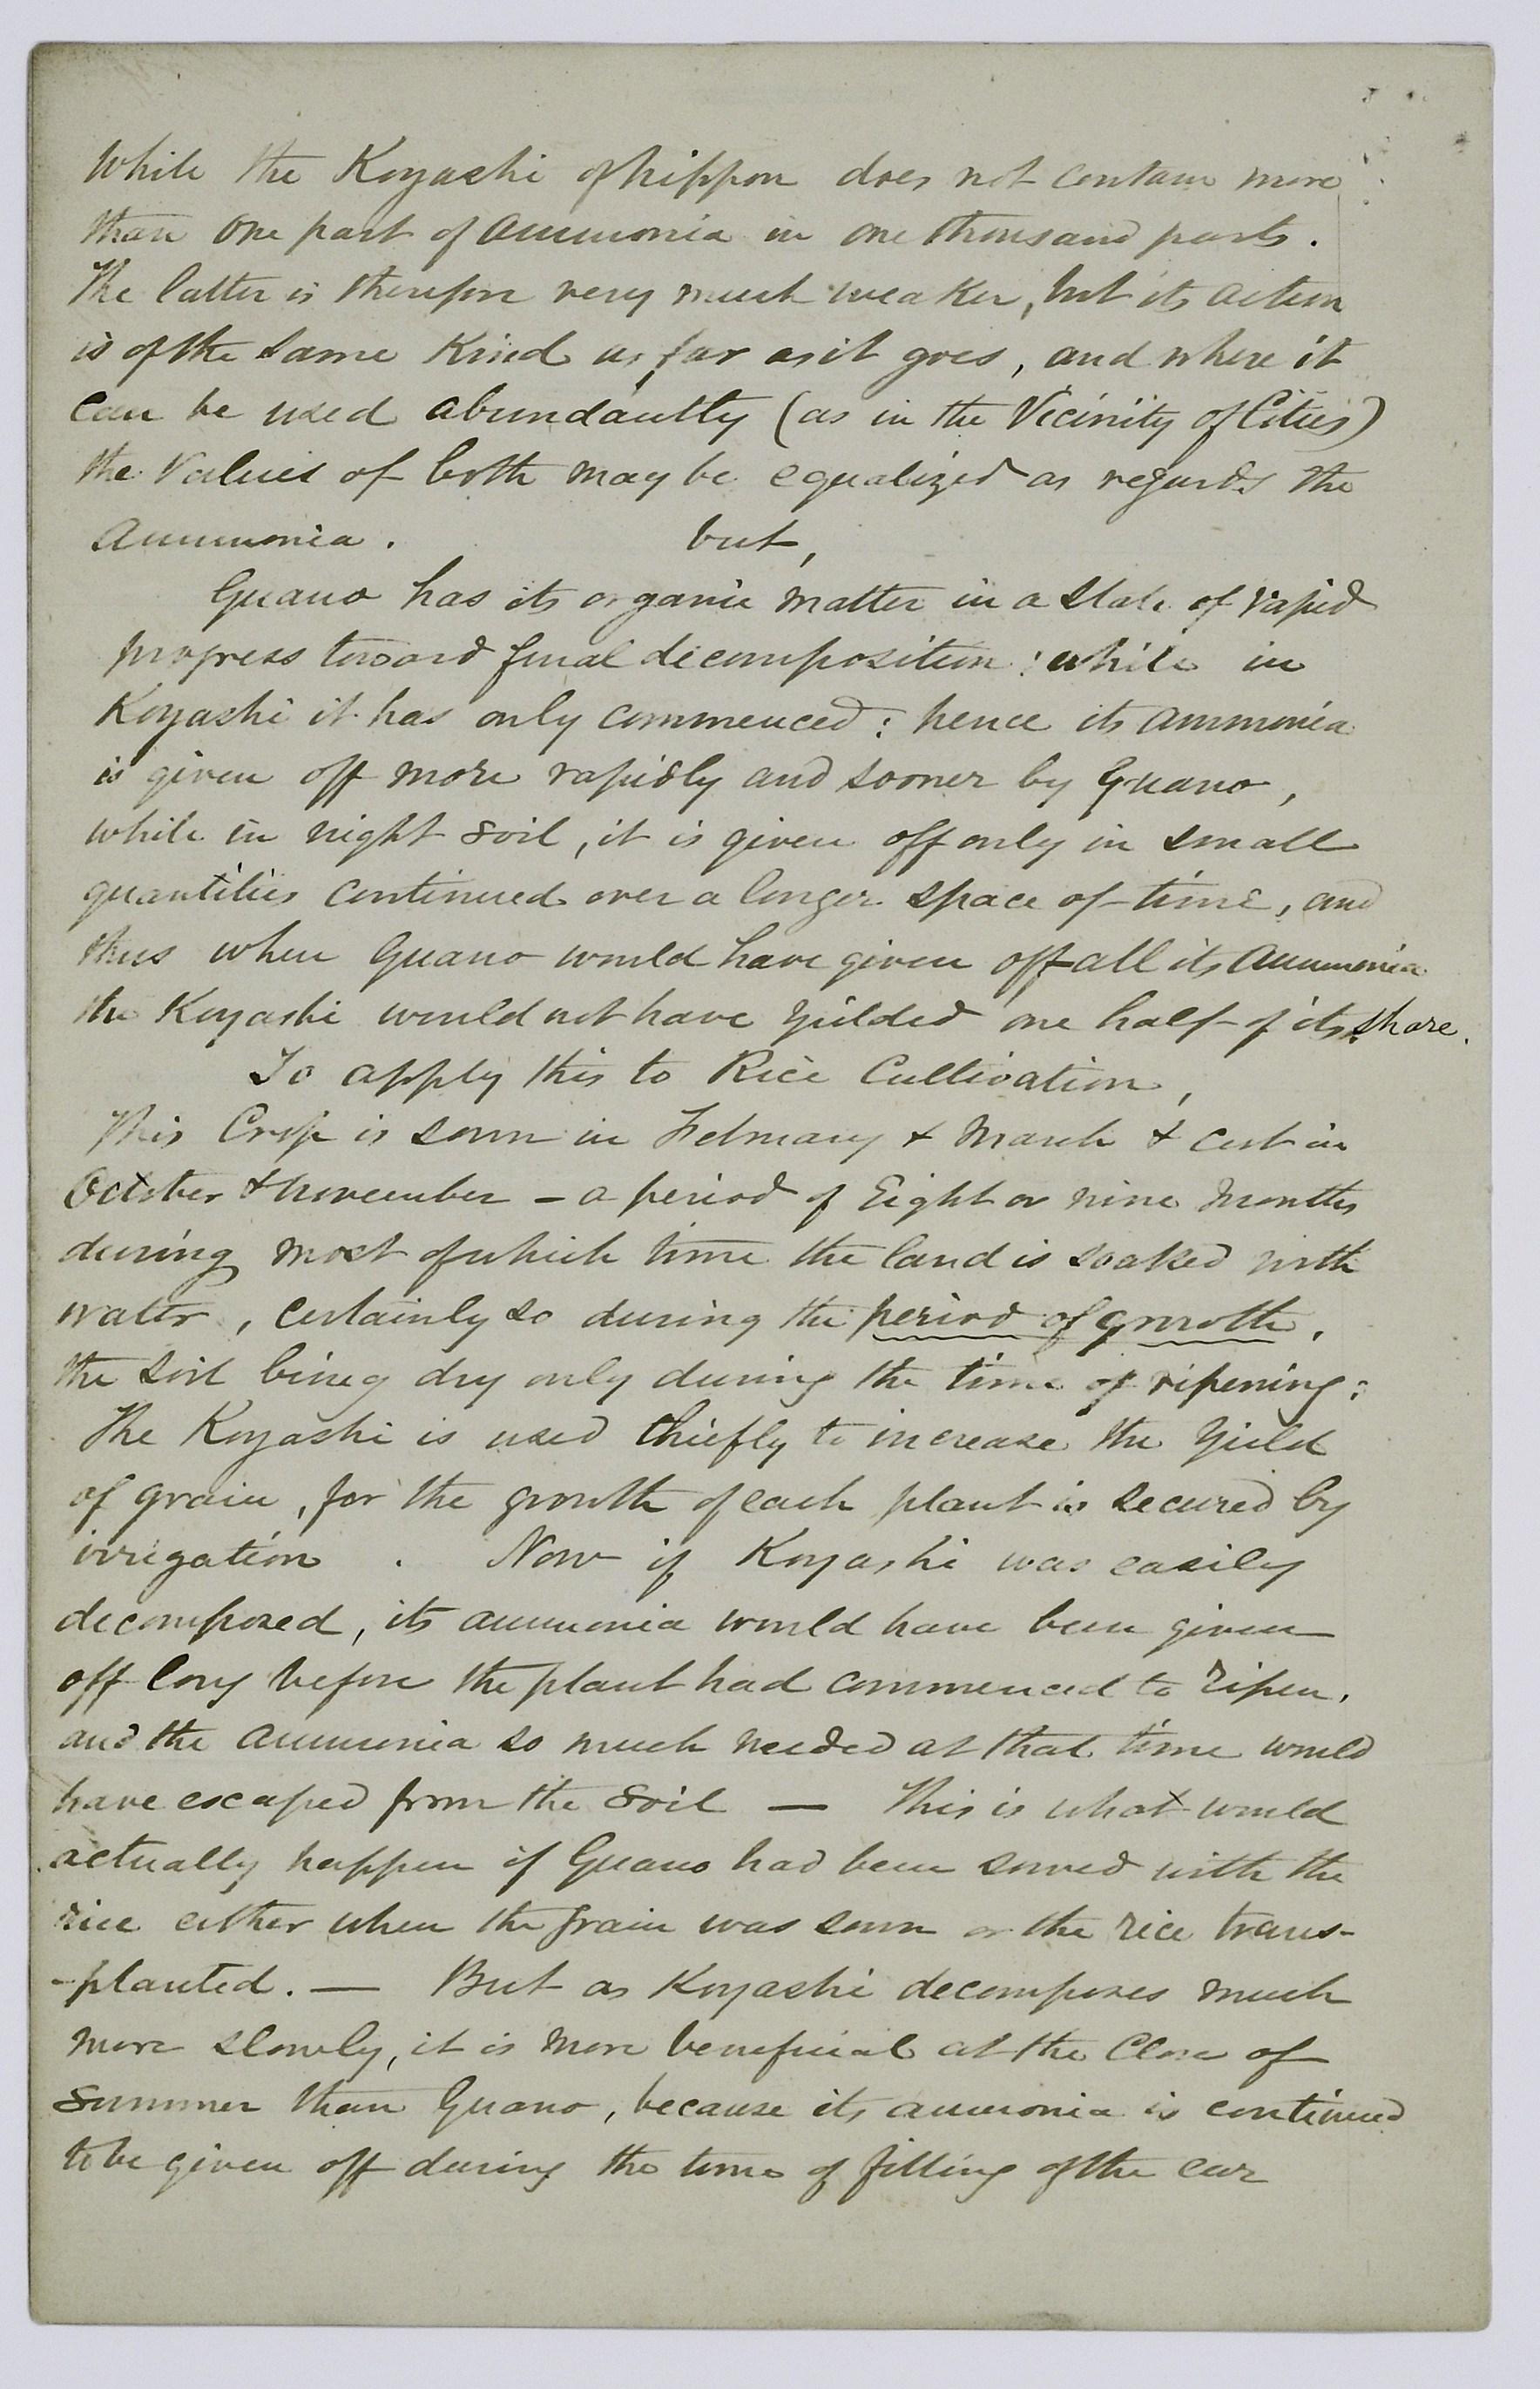 While the Koyashi of Nippon does not contain more
than one part of Ammonia in one thousand parts.
The latter is therefore very much weaker, but its action
is of the same Kind as far as it goes, and where it
can be used abundantly (as in the Vicinity of Cities)
the Values of both may be equalized as regards the
Ammonia. but,
Guano has its organic matter in a state of rapid
progress toward final decomposition: while in
Koyashi it has only commenced: hence its ammonia
is given off more rapidly and sooner by Guano,
while in night soil, it is given off only in small
quantities continued over a longer space of time, and
thus when Guano would have given off all its Ammonia
the Koyashi would not have yeilded one half of its share.
To apply this to Rice Cultivation,
This Crop is sown in February & March & cut in
October & November – a period of Eight or nine months
during most of which time the land is soaked with
water, certainly so during the period of growth,
the soil being dry only during the time of ripening:
The Koyashi is used chiefly to increase the yield
of grain, for the growth of each plant is secured by
irrigation. Now if Koyashi was easily
decomposed, its ammonia would have been given
off long before the plant had commenced to ripen,
and the ammonia so much needed at that time would
have escaped from the soil — This is what would
actually happen if Guano had been sowed with the
rice either when the grain was sown or the rice trans-
-planted. — But as Koyashi decomposes much
more slowly, it is more beneficial at the Close of
Summer than Guano, because its ammonia is continued
to be given off during the time of filling of the ear